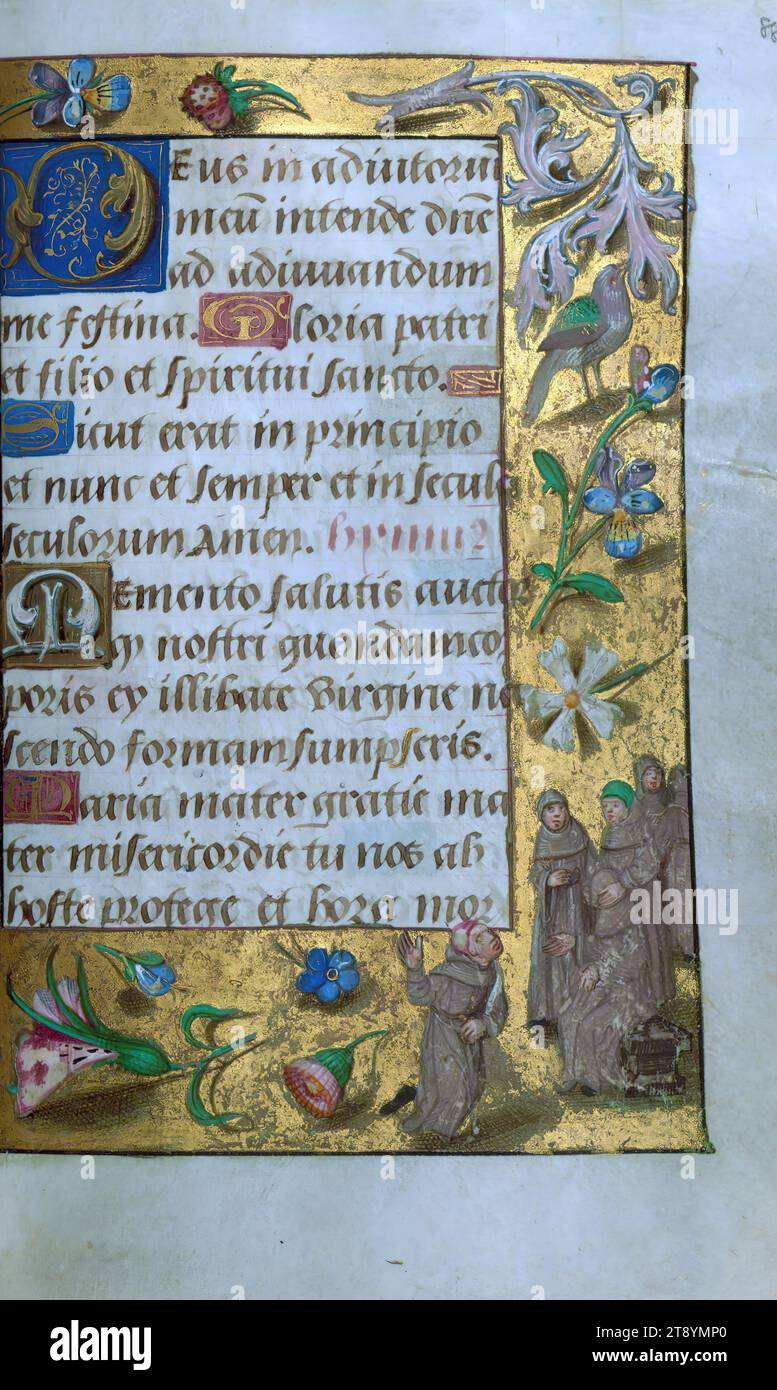 88
Deus in adiutoriũ
meũ intende dñe
ad adiuuandum
me festina. Gloria patri
et filio et spiritui sancto.
Sicut erat in principio
et nunc et semper et in secula
seculorum Amen. hymnus
Memento salutis auctor
qy nostri quondam cor
poris ex illibate Virgine na
scendo formam sumpseris.
Maria mater gratie ma
ter misericordie tu nos ab
hoste protege et hora mor
alamy
Image ID: 2T8YMP0
www.alamy.com